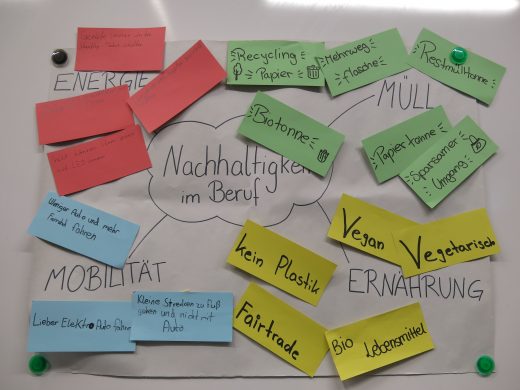 ENERGIE
Recycling
Papier
Mehrweg
flasche
Restmülltonne
MÜLL
Biotonne
Papiertonne
Sparsamer
Umgang
Nachhaltigkei
im Beruf
Weniger Auto und mehr
Fahrrad fahren
MOBILITÄT
Lieber Elektro Auto fahren
Kleine Strecken zu fuß
gehen und nicht mit
Auto
kein Plastik
Fairtrade
Vegan
Vegetarisch
ERNÄHRUNG
Bio
Lebensmittel